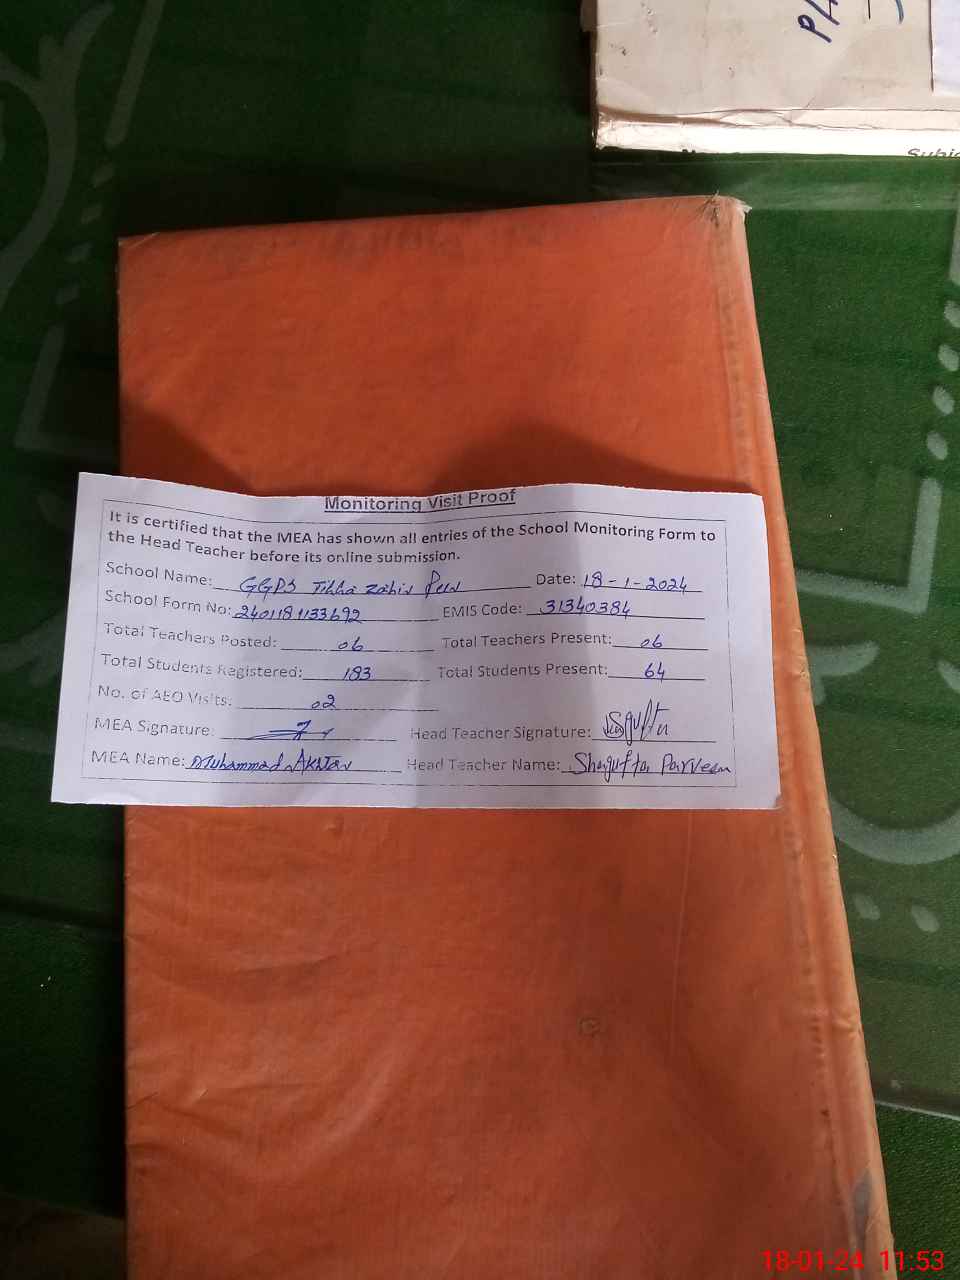 Monitoring Visit Proof
It is certified that the MEA has shown all entries of the School Monitoring Form to
the Head Teacher before its online submission.
School Name: GGPS Zahir Date: 18-1-2024
School Form No: EMIS Code: 31340384
Total Teachers Posted: 06 Total Teachers Present: 06
Total Students Registered: 183 Total Students Present: 64
No. of AEO Visits: 02
MEA Signature: Head Teacher Signature:
MEA Name: Muhammad Akhtar Head Teacher Name: Shagufta Parveen
18-01-24 11:53